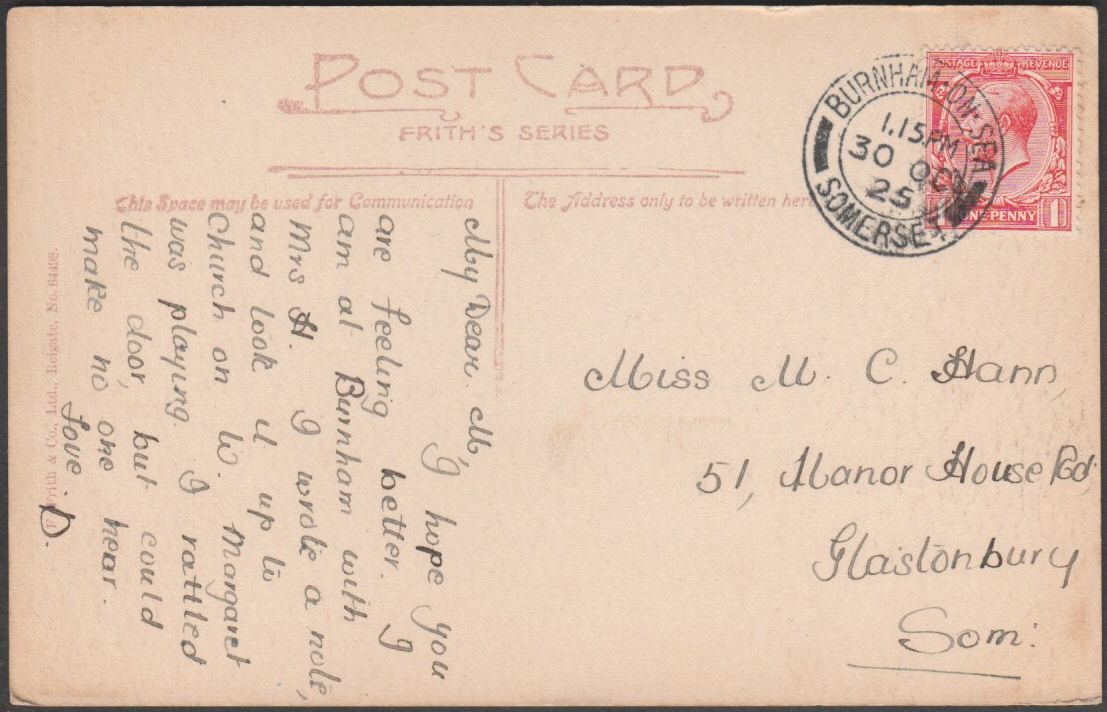 POST CARD
FRITH'S SERIES
This Space may be used for Communication
The Address only to be written here
BURNHAM-ON-SEA
1.15PM
30 OC
25
SOMERSET
POSTAGE REVENUE
ONE PENNY 1
My Dear M,
I hope you
are feeling better. I
am at Burnham with
Mrs H. I wrote a note,
and look it up to
Church on W. Margaret
was playing. I rattled
the door, but could
make no one hear.
Love. D.
Miss M. C. Hann,
51, Manor House Rd
Glastonbury
Som:
F. Frith & Co., Ltd., Reigate, No. 64498.